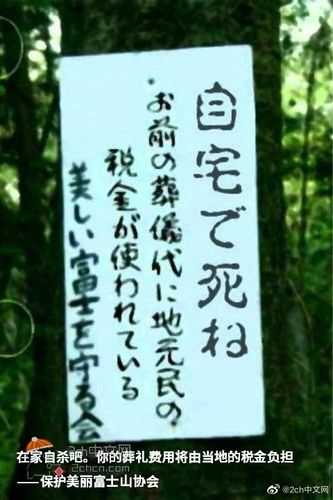 自宅で死ね
・お前の葬儀代に地元民の
税金が使われている
美しい富士を守る会
在家自杀吧。你的葬礼费用将由当地的税金负担
——保护美丽富士山协会
2chcn.com
@2ch中文网